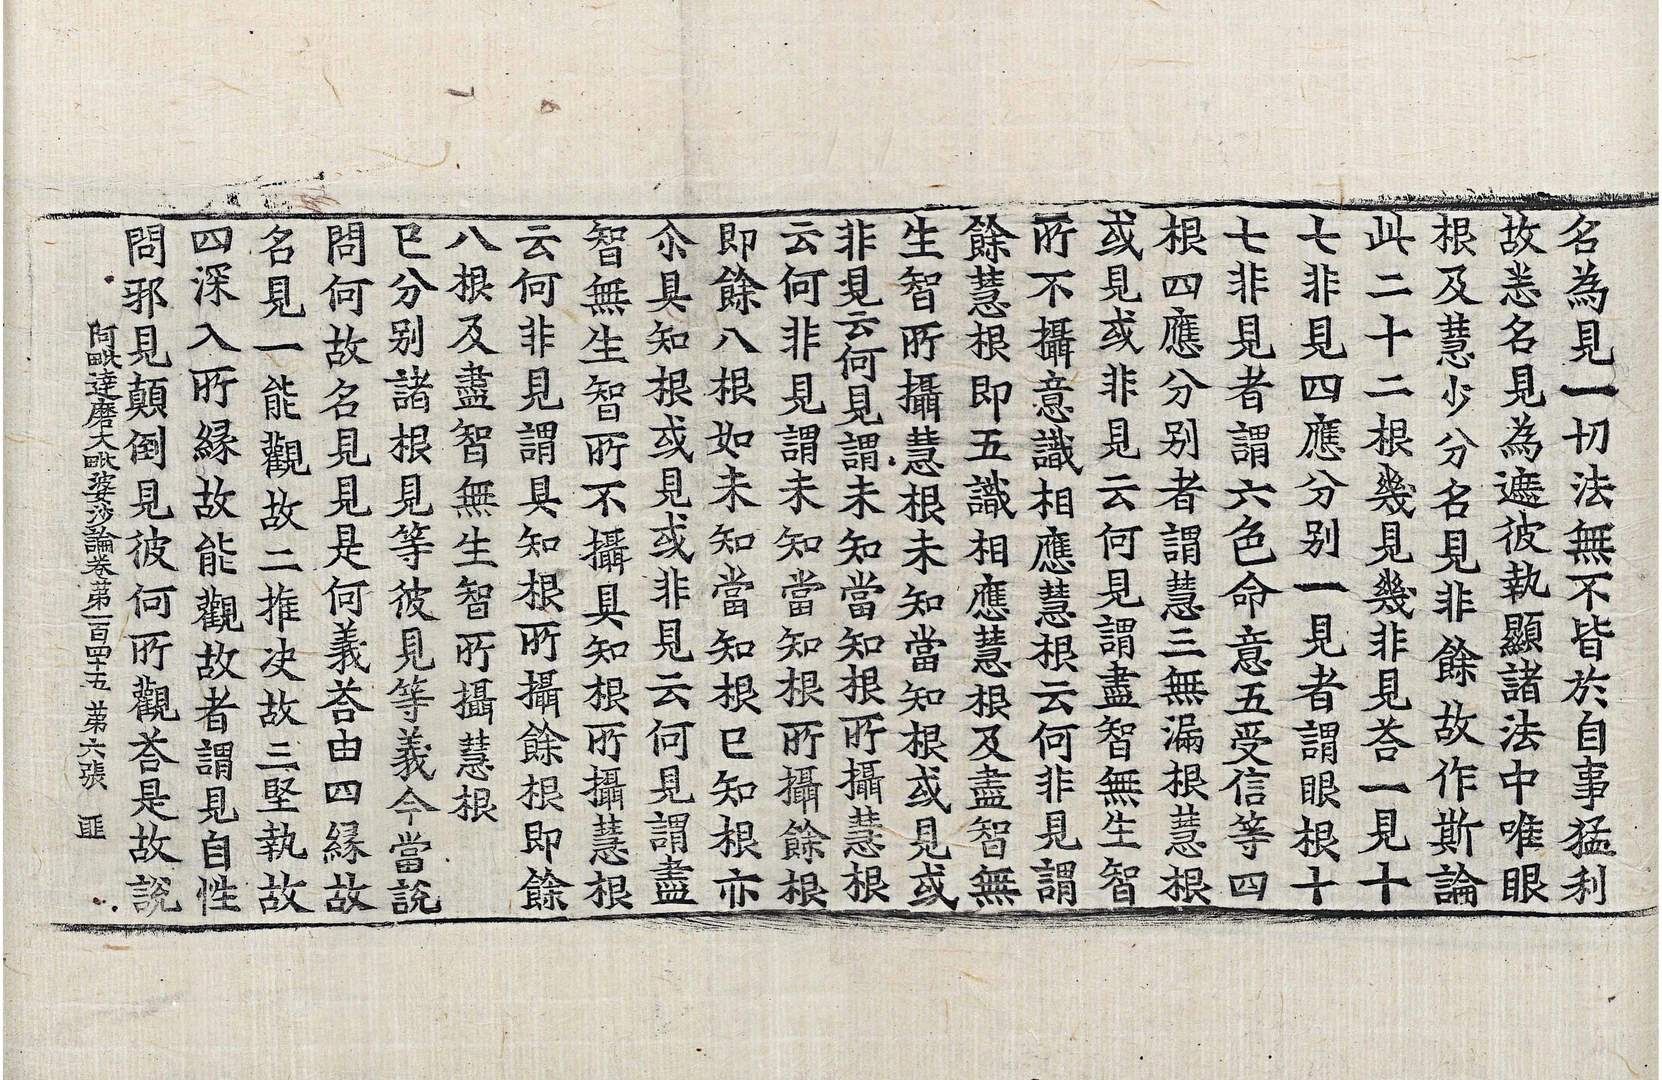 名為見一切法無不皆於自事猛利
故恙名見為遮彼執顯諸法中唯眼
根及慧少分名見非餘故作斯論
此二十二根幾見幾非見荅一見十
七非見四應分别一見者謂眼根十
七非見者謂六色命意五受信等四
根四應分别者謂慧三無漏根慧根
或見或非見云何見謂盡智無生智
所不攝意識相應慧根云何非見謂
餘慧根即五識相應慧根及盡智無
生智所攝慧根未知當知根或見或
非見云何見謂未知當知根所攝慧根
云何非見謂未知當知根所攝餘根
即餘八根如未知當知根已知根亦
尒具知根或見或非見云何見謂盡
智無生智所不攝具知根所攝慧根
云何非見謂具知根所攝餘根即餘
八根及盡智無生智所攝慧根
已分别諸根見等彼見等義今當說
問何故名見見是何義荅由四縁故
名見一能觀故二推决故三堅執故
四深入所縁故能觀故者謂見自性
問邪見顛倒見彼何所觀荅是故說
阿毗達磨大毗婆沙論卷第一百四十五 第六張 匪